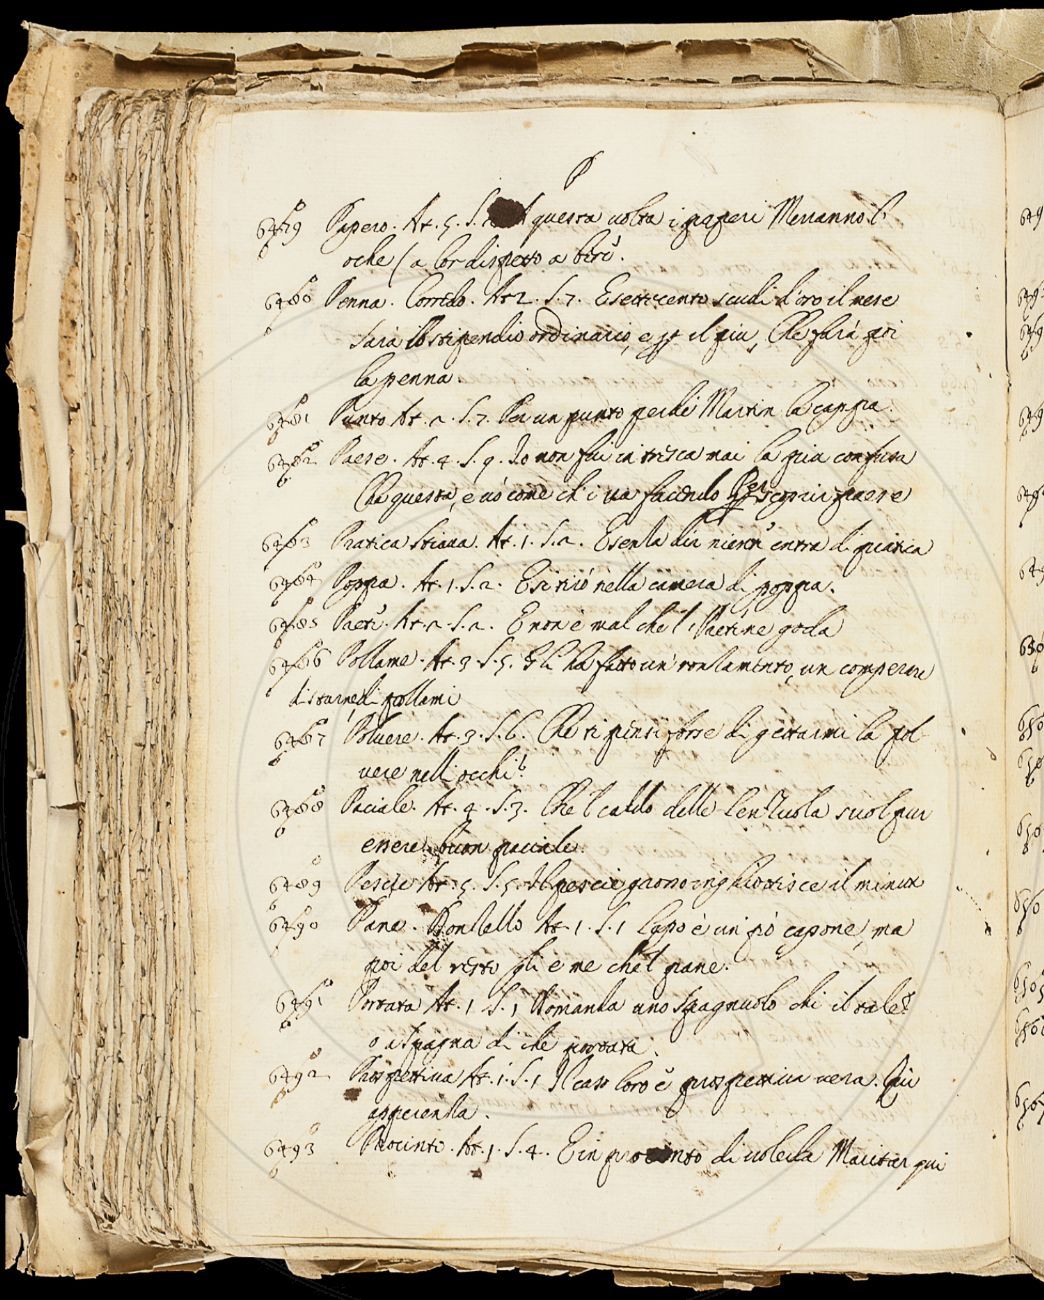 P
6479 Papero. At. 5. S. questa uolta i paperi Menanno l'
oche (a lor dispetto a bere.
6480 Penna. Corrédo. At 2. S. 7. E settecento scudi d'oro il mese
sara lo stipendio ordinario, e il piu, Che farà poi
la penna
6481 Punto At. 2. S. 7. Per un punto perdè Martin la cappa.
6482 Paese. At. 4. S. 9. Io non fui in tresca mai la piu confusa
Che questa, e uò come chi ua facendo Per scoprir paese
6483 Pratica stiaua. At. 1. S. 2. E senla dir niente entra di pratica
6484 Poppa. At. 1. S. 2. E si tirò nella camera di poppa.
6485 Paeti. At. 2. S. 2. E non è mal che'l Paeti ne goda
6486 Pollame. At. 3. S. 5. Gli ha fatto un' ronlamento, un comperare
di starne, di pollami
6487 Poluere. At. 3. S. 6. Che ti pensi forse di gettarmi la pol-
uere nelli occhi?
6488 Paciale. At. 4. S. 3. Che'l caldo delle lenzuola suol pur
essere buon paciale.
6489 Pescie At. 5. S. 5. Il pescie grosso inghiottisce il minut
6490 Pane. Donzello At. 1. S. 1 Capo è un pò capone, ma
poi del resto gli è me che'l pane.
6491 Portata At. 1 S. 1 Domanda uno spagnuolo chi il tale?
o a spagna di che portata.
6492 Prospettiua At. 1. S. 1 Il caso loro è prospettiua uera. Cui
apparenza.
6493 Procinto. At. 1. S. 4. E in procinto di uolerla Maritar qui